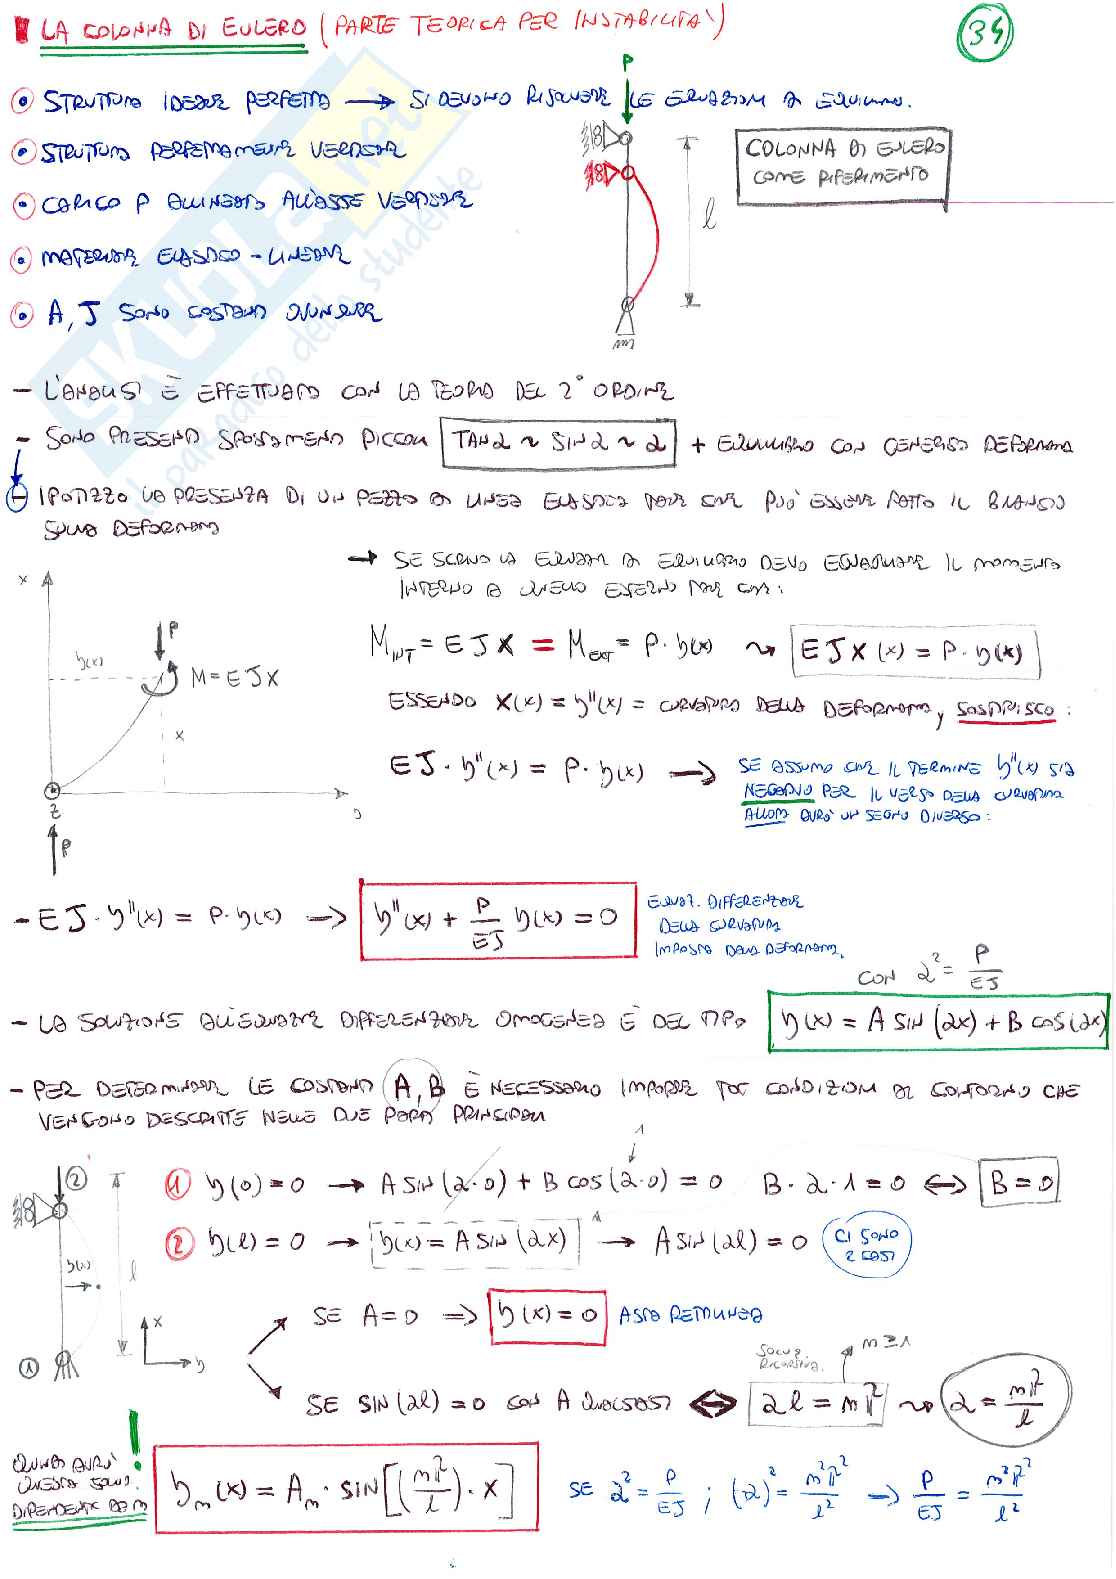 LA COLONNA DI EULERO (PARTE TEORICA PER INSTABILITA')
34
STRUTTURA IDEALE PERFETTA → SI DEVONO RISOLVERE LE EQUAZIONI DI EQUILIBRIO.
STRUTTURA PERFETTAMENTE VERTICALE
CARICO P ALLINEATO ALL'ASSE VERTICALE
MATERIALE ELASTICO - LINEARE
A, J SONO COSTANTI OVUNQUE
P
l
COLONNA DI EULERO
COME RIFERIMENTO
- L'ANALISI È EFFETTUATA CON LA TEORIA DEL 2° ORDINE
- SONO PRESENTI SPOSTAMENTI PICCOLI TAN α ~ SIN α ~ α + EQUILIBRIO CON GENERICA DEFORMATA
- IPOTIZZO LA PRESENZA DI UN PEZZO DI LINEA ELASTICA TALE CHE PUÒ ESSERE FATTO IL BILANCIO
SULLA DEFORMATA
→ SE SCRIVO LA EQUAZ. DI EQUILIBRIO DEVO EGUAGLIARE IL MOMENTO
INTERNO A QUELLO ESTERNO TALE CHE:
x
y(x)
P
M = EJχ
x
z
y
P
M INT = EJχ = M EXT = P · y(x) ⇝ EJχ(x) = P · y(x)
ESSENDO χ(x) = y''(x) = CURVATURA DELLA DEFORMATA, SOSTITUISCO:
EJ · y''(x) = P · y(x) → SE ASSUMO CHE IL TERMINE y''(x) SIA
NEGATIVO PER IL VERSO DELLA CURVATURA
ALLORA AVRÒ UN SEGNO DIVERSO:
- EJ · y''(x) = P · y(x) → y''(x) + P/EJ y(x) = 0
EQUAZ. DIFFERENZIALE
DELLA CURVATURA
IMPOSTA DALLA DEFORMATA.
CON α² = P/EJ
- LA SOLUZIONE ALL'EQUAZIONE DIFFERENZIALE OMOGENEA È DEL TIPO y(x) = A SIN(αx) + B COS(αx)
- PER DETERMINARE LE COSTANTI A, B È NECESSARIO IMPORRE CONDIZIONI AL CONTORNO CHE
VENGONO DESCRITTE NELLE DUE PARTI PRINCIPALI
1
① y(0) = 0 → A SIN(α·0) + B COS(α·0) = 0 B · α · 1 = 0 ⟺ B = 0
② y(l) = 0 → y(x) = A SIN(αx) → A SIN(αl) = 0 CI SONO
2 CASI
②
y(x)
l
x
y
①
SE A = 0 ⟹ y(x) = 0 ASTA RETTILINEA
SOLUZ.
RICORSIVA.
m ≥ 1
SE SIN(αl) = 0 CON A QUALSIASI ⟺ αl = mπ ⇝ α = mπ/l
QUINDI AVRÒ
QUESTA SOLUZ.
DIPENDENTE DA m
!
yₘ(x) = Aₘ · SIN[(mπ/l) · x]
SE α² = P/EJ ; (α)² = m²π²/l² → P/EJ = m²π²/l²
SKUOLA.net
il paradiso dello studente